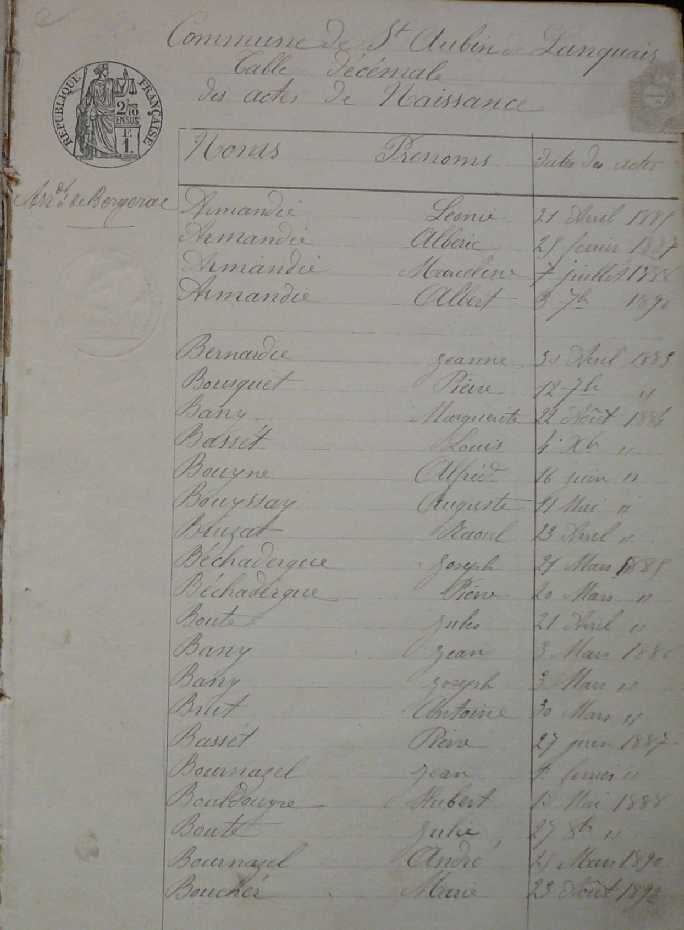 Commune de St Aubin de Lanquais
Table décémale
des actes de Naissance
RÉPUBLIQUE FRANÇAISE
2/10 EN SUS
E 1.
Noms Prénoms Dates des actes
Arrdt de Bergerac
Armandie Léonie 21 Avril 1885
Armandie Albéric 25 février 1887
Armandie Maudine 7 juillet 1888
Armandie Albert 3 7bre 1890
Bernardie Jeanne 30 Avril 1883
Bousquet Pierre 12 7bre "
Bany Marguerite 22 Août 1884
Basset Louis 4 Xbre "
Bouyne Alfred 16 juin "
Bouyssay Auguste 11 Mai "
Bruzat Raoul 23 Avril "
Béchadergue Joseph 25 Mars 1885
Béchadergue Pierre 20 Mars "
Boute Jules 21 Avril "
Bany Jean 3 Mars 1886
Bany Joseph 3 Mars "
Brut Antoine 30 Mars "
Basset Pierre 27 juin 1887
Bournazel Jean février "
Bouldouyre Hubert 13 Mai 1888
Boute Julie 27 8bre "
Bournazel André 25 Mars 1890
Boucher Marie 23 Août 1892